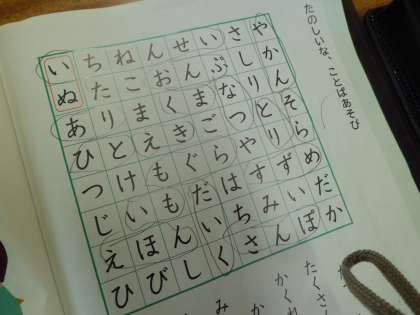 たのしいな、ことばあそび
いちねんせいさや
ぬたこおんぶしか
ありまくまなりん
ひとえきごつとそ
つけもぐらやりら
じいもだはすずめ
えほんいちみいだ
ひびしくさんぽか
たくさ
かくれ
か
み